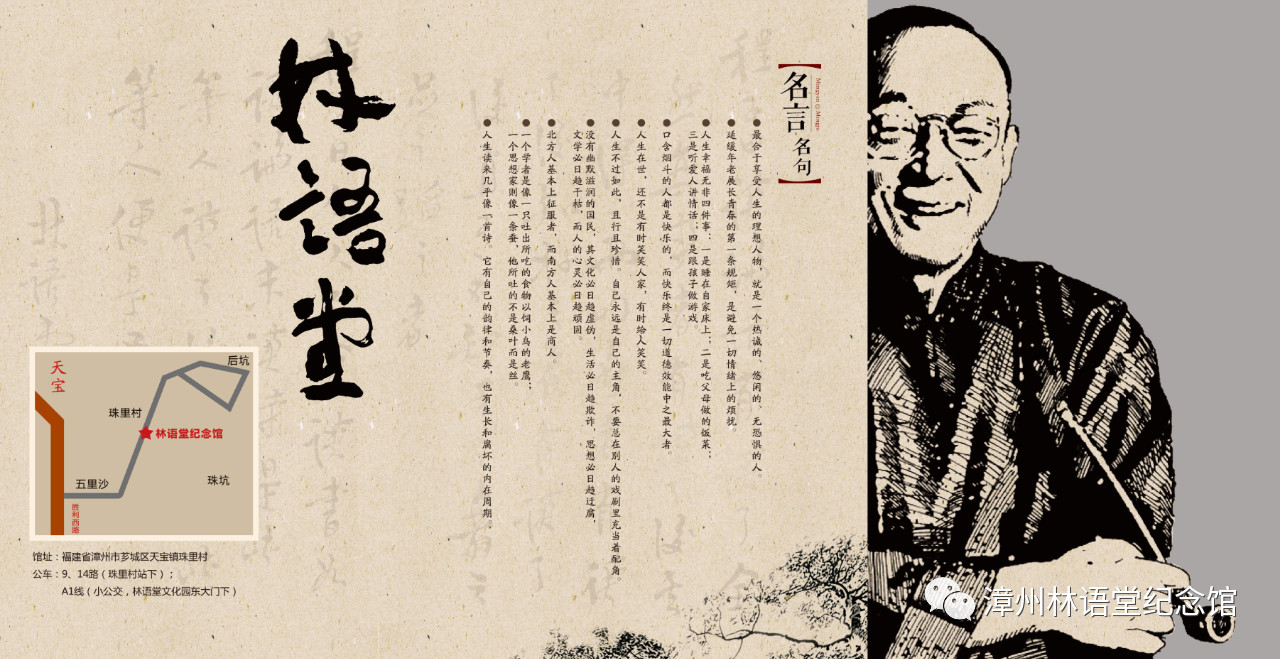 林語堂
名言名句
Mingyan@Mingju
●最合于享受人生的理想人物，就是一个热诚的、悠闲的、无恐惧的人。
●延缓年老展长青春的第一条规矩，是避免一切情绪上的烦扰。
●人生幸福无非四件事：一是睡在自家床上；二是吃父母做的饭菜；
三是听爱人讲情话；四是跟孩子做游戏。
●口含烟斗的人都是快乐的，而快乐终是一切道德效能中之最大者。
●人生在世，还不是有时笑笑人家，有时给人笑笑。
●人生不过如此，且行且珍惜。自己永远是自己的主角，不要总在别人的戏剧里充当着配角。
●没有幽默滋润的国民，其文化必日趋虚伪，生活必日趋欺诈，思想必日趋迂腐，
文学必日趋干枯，而人的心灵必日趋顽固。
●北方人基本上征服者，而南方人基本上是商人。
●一个学者是像一只吐出所吃的食物以饲小鸟的老鹰；
一个思想家则像一条蚕，他所吐的不是桑叶而是丝。
●人生读来几乎像一首诗。它有自己的韵律和节奏，也有生长和腐坏的内在周期。
天宝
后坑
珠里村
林语堂纪念馆
五里沙
珠坑
胜利西路
馆址：福建省漳州市芗城区天宝镇珠里村
公车：9、14路（珠里村站下）；
A1线（小公交，林语堂文化园东大门下）
漳州林语堂纪念馆